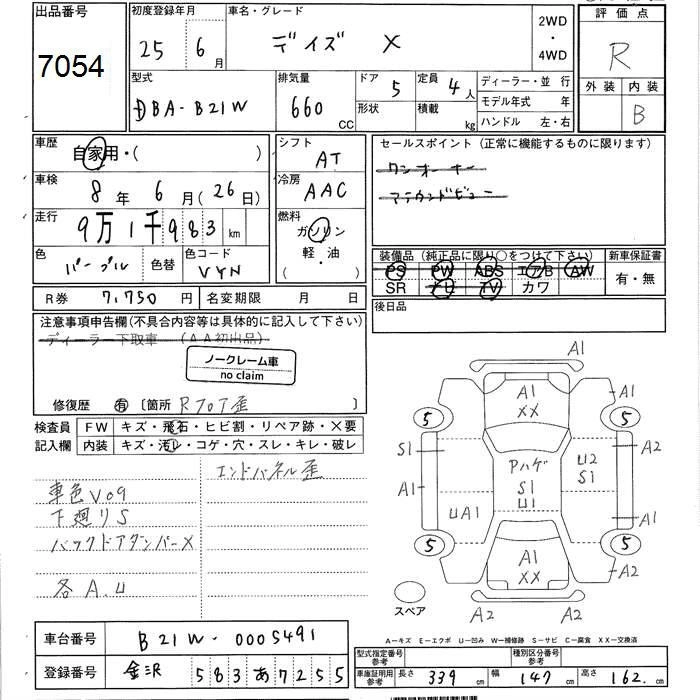 出品番号
7054
初度登録年月
25 6月
車名・グレード
デイズ X
2WD
・
4WD
評価点
R
外装 内装
B
型式
DBA-B21W
排気量
660 CC
ドア 5
形状
定員 4人
積載 kg
ディーラー・並 行
モデル年式 年
ハンドル 左・右
車歴
自家用・( )
シフト
AT
セールスポイント (正常に機能するものに限ります)
ワンオーナー
アラウンドビュー
車検
8年 6月(26日)
冷房
AAC
走行
9万1千983km
燃料
ガソリン
軽・油
( )
色
パープル
色替
色コード
VYN
装備品 (純正品に限り○をつけて下さい)
PS PW ABS エアB AW
SR ナビ TV カワ
新車保証書
有・無
R券 7,750円
名変期限 月 日
後日品
注意事項申告欄(不具合内容等は具体的に記入して下さい)
ディーラー下取車 (AA初出品)
ノークレーム車
no claim
修復歴 有 〔箇所 Rフロア歪 〕
検査員
記入欄
FW キズ・飛石・ヒビ割・リペア跡・X要
内装 キズ・汚レ・コゲ・穴・スレ・キレ・破レ
エンドパネル歪
車色V09
下廻りS
バックドアダンパーX
各A.U
A1
A1
XX
5
5
S1
A2
Pハゲ
S1
U1
U2
S1
A1
UA1
A1
5
5
A1
XX
A2
スペア
A2
A2
A-キズ E-エクボ U-凹み W-補修跡 S-サビ C-腐食 XX-交換済
車台番号
B21W-0005491
登録番号
金沢 583あ7255
型式指定番号
参考
種別区分番号
参考
車庫証明用
参考
長さ 339cm
幅 147cm
高さ 162cm